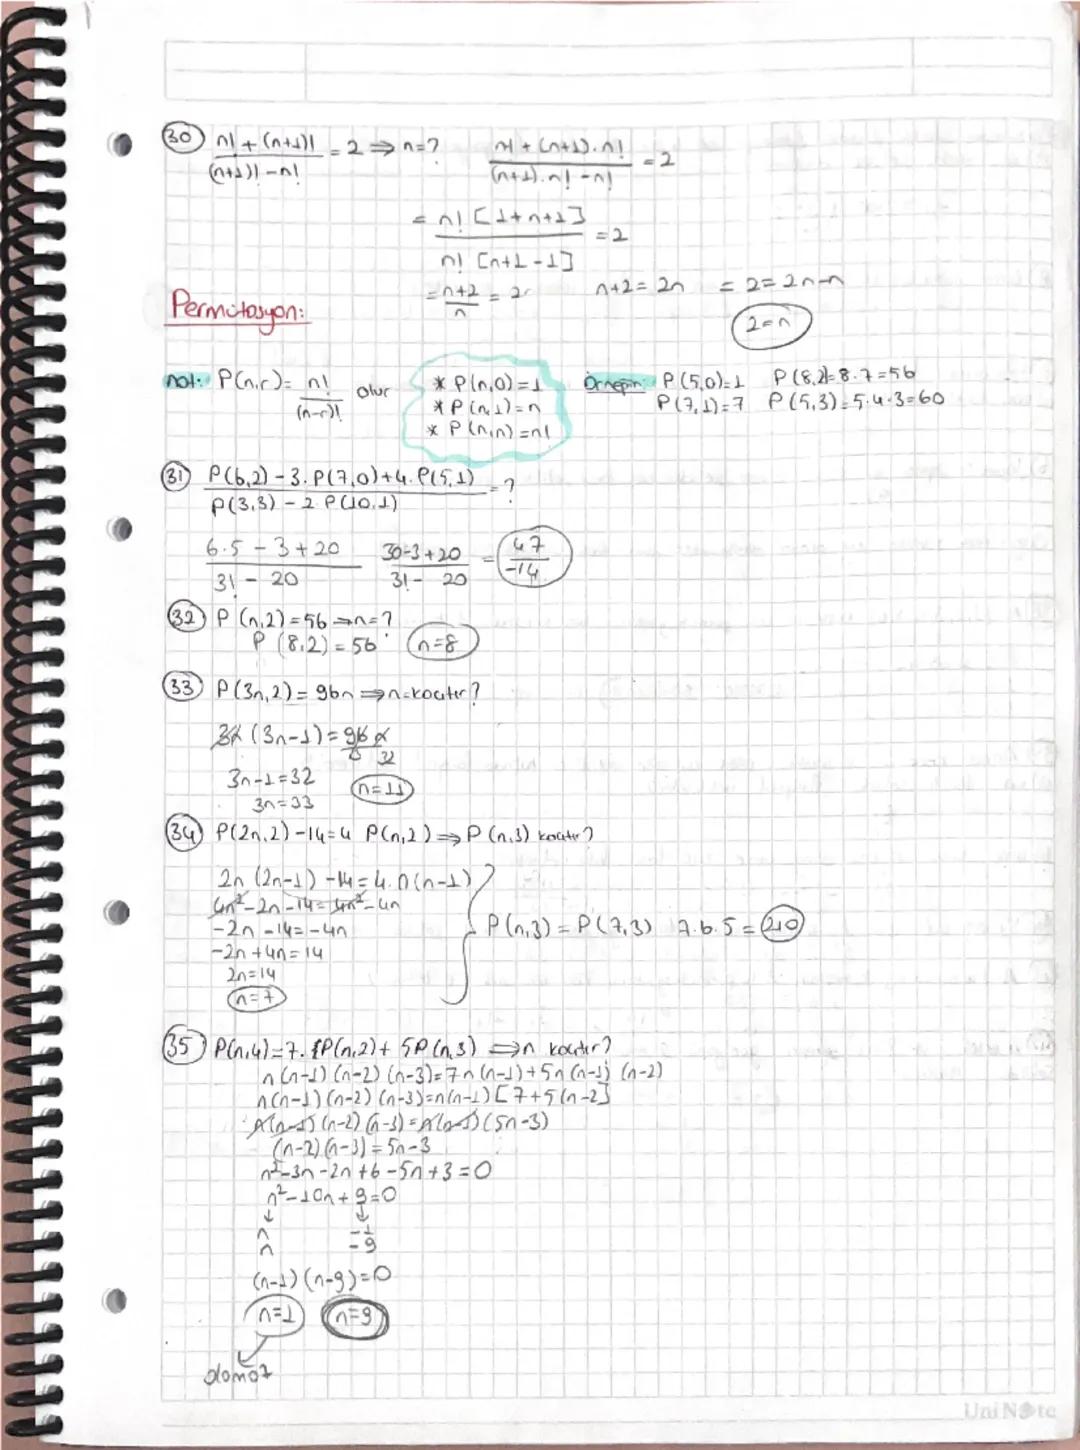 30 n! + (n+1)! / (n+1)! - n! = 2 ⇒ n=? n! + (n+1).n! / (n+1).n! - n! = 2
= n! [1+n+1] / n! [n+1-1] = 2
= n+2 / n = 2 n+2 = 2n = 2 = 2n-n
2=n
Permütasyon:
not: P(n,r) = n! / (n-r)! olur
* P(n,0) = 1
* P(n,1) = n
* P(n,n) = n!
Örneğin: P(5,0)=1 P(8,2)=8.7=56
P(7,1)=7 P(5,3)=5.4.3=60
31 P(6,2) - 3.P(7,0) + 4.P(5,1) / P(3,3) - 2.P(10,1) = ?
6.5 - 3 + 20 / 3! - 20 30-3+20 / 3! - 20 = 47 / -14
32 P(n,2) = 56 ⇒ n=?
P(8,2) = 56 n=8
33 P(3n,2) = 96n ⇒ n=kaçtır?
3n (3n-1) = 96n
32
3n-1=32
3n=33 n=11
34 P(2n,2) - 14 = 4 P(n,2) ⇒ P(n,3) kaçtır?
2n (2n-1) - 14 = 4.n(n-1)
4n²-2n-14 = 4n²-4n
-2n-14=-4n P(n,3) = P(7,3) 7.6.5 = 210
-2n+4n=14
2n=14
n=7
35 P(n,4) = 7. P(n,2) + 5P(n,3) ⇒ n kaçtır?
n(n-1)(n-2)(n-3) = 7n(n-1) + 5n(n-1)(n-2)
n(n-1)(n-2)(n-3) = n(n-1)[7+5(n-2]
n(n-1)(n-2)(n-3) = n(n-1)(5n-3)
(n-2)(n-3) = 5n-3
n²-3n-2n+6-5n+3=0
n²-10n+9=0
n -1
n -9
(n-1)(n-9)=0
n=1 n=9
olamaz
UniNote